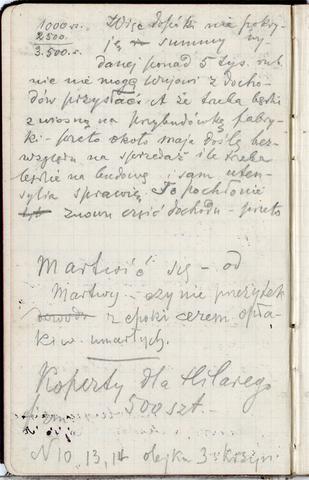 1000 rs.
2500.
3.500.s.
Więc dopóki nie pokry-
ję summy wy-
danej ponad 5 tys. rub.
nic nie mogę wujowi z docho-
dów przysłać. A że trzeba będzie
z wiosną na przybudówkę fabry-
ki - przeto około maja doślę bez-
względu na sprzedaż ile trzeba
będzie na budowę i sam uten-
sylia sprawię. To pochłonie
znowu część dochodu - przeto
Martwić się - od
Martwy - czy nie przeżytek
z epoki cerem opła-
ki w. umarłych.
Koperty dla Hilarego
500 szt.
N 10, 13, 14 olejku 3